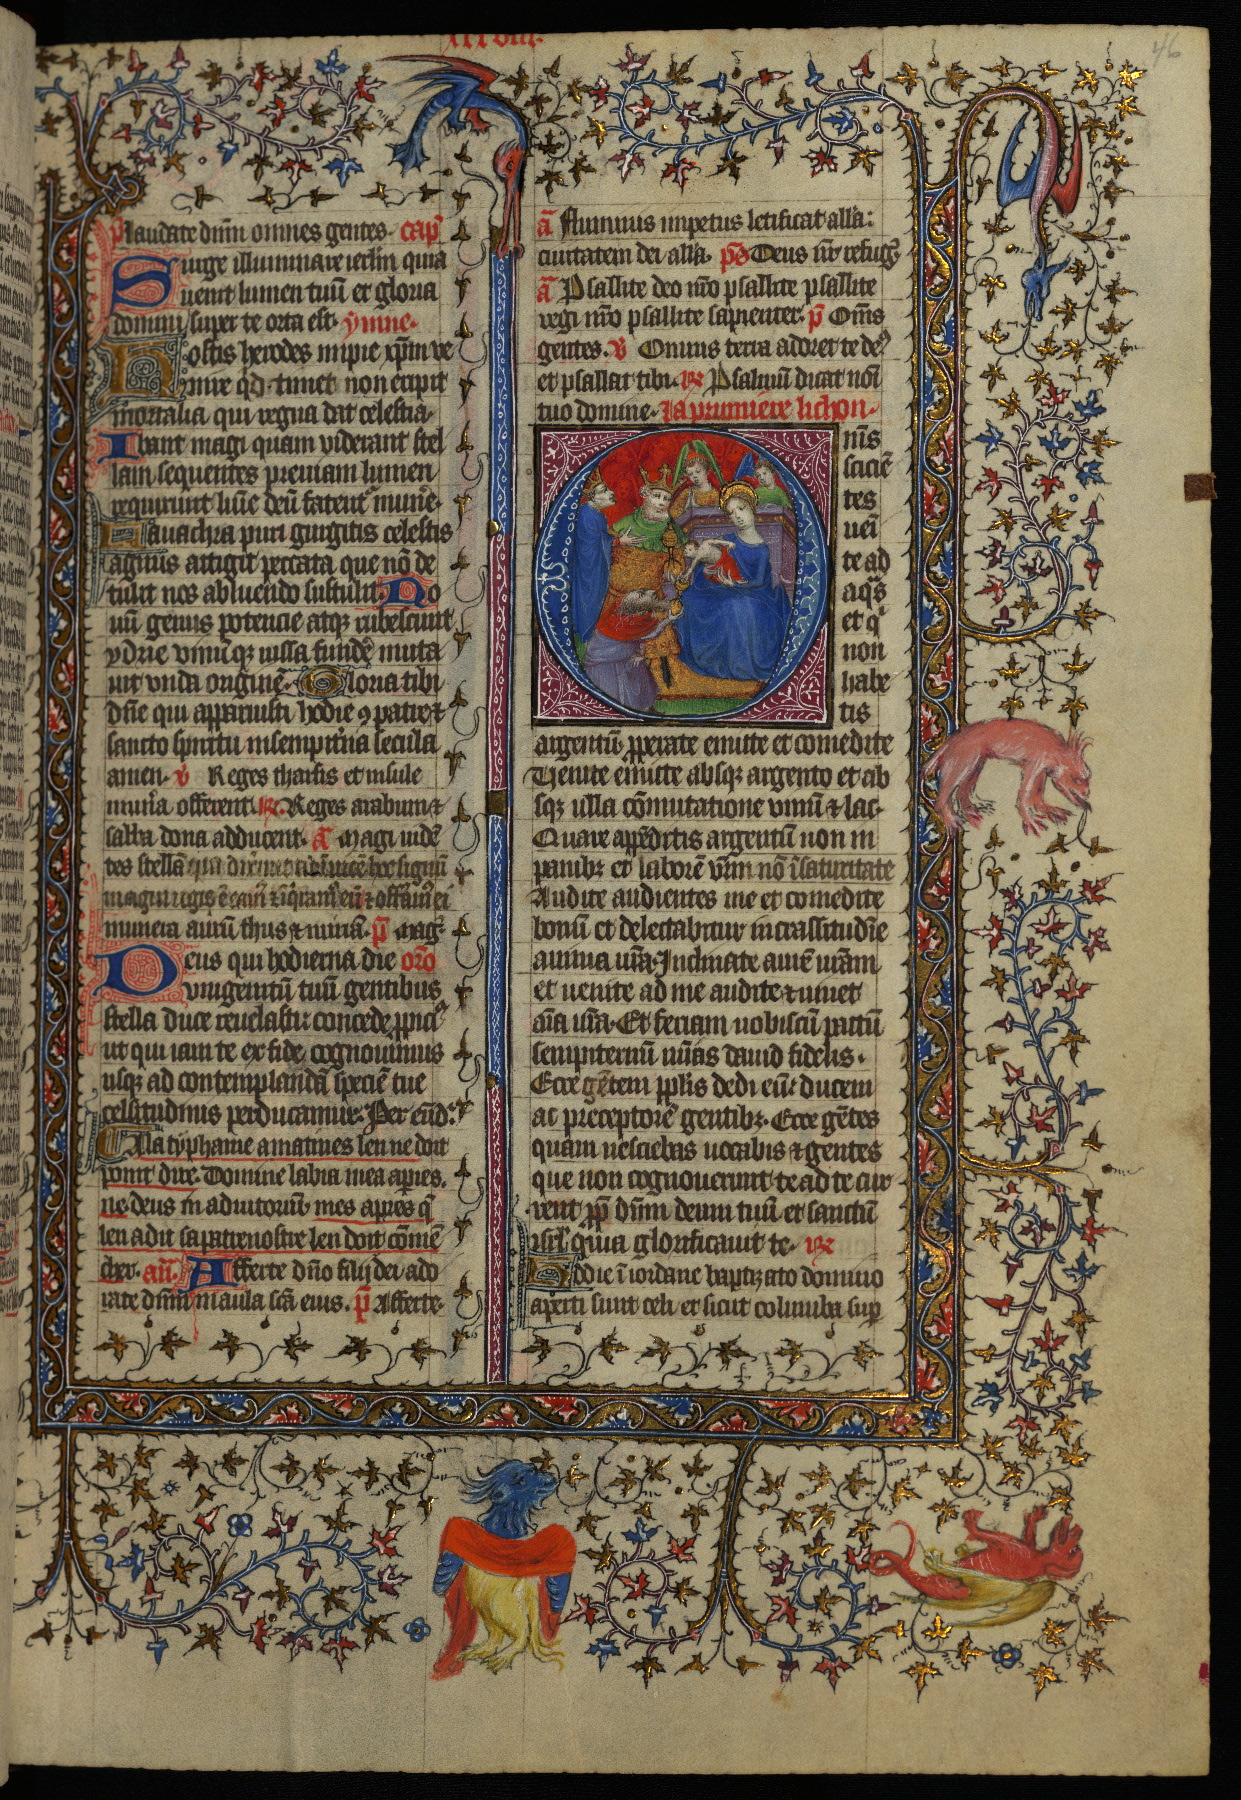 xxxviii.
46
p̄ laudate dn̄m omnes gentes. cap̄
Surge illuminare ierl̄m quia
uenit lumen tuū et gloria
domini super te orta est. ymne.
Hostis herodes impie xp̄m ve
nire qd̄ times non eripit
mortalia qui regna dat celestia.
Ibant magi quam viderant stel
lam sequentes preuiam lumen
requirunt
Lauachra puri gurgitis celestis
agnus attigit peccata que nō de
tulit nos abluendo sustulit. No
uū genus potencie atqꝫ rubescunt
ydrie vinūqꝫ iussa fundē muta
uit vnda originē. Gloria tibi
dn̄e qui apparuisti hodie ꝯ patre ⁊
sancto spiritu in sempit̄na secula
amen. v̄ Reges tharsis et insule
mun̄a offerent. R. Reges arabum ⁊
sabba dona adducent. ā Magi uidē
tes stellā
munera aurū thus ⁊ mirrā. p̄ Maḡ
Deus qui hodierna die orō
vnigenitū tuū gentibus
stella duce reuelasti: concede
ut qui iam te ex fide cognouimus
usqꝫ ad contemplandā speciē tue
celsitudinis perducamur. Per eūd.
A la typhaine a matines len ne doit
point dire. Domine labia mea aperies.
ne deus in adiutoriū. mes apries q̄
len a dit sa patrenostre len doit cōmē
chier. an̄. Afferte dn̄o filij dei ado
rate dn̄m in aula scā eius. p̄ Afferte.
ā Fluminis impetus letificat all̄a:
ciuitatem dei all̄a. ps̄ Deus nr̄ refug
ā Psallite deo nr̄o psallite psallite
regi nr̄o psallite sapienter. p̄ Om̄s
gentes. v̄ Omnis terra adoret te deꝰ
et psallat tibi. R Psalmū dicat noī
tuo domine. La premiere lichon.
Omīs
sciciē
tes
ueī
te ad
aq̄s
et q
non
habe
tis
argentū pperate emite et comedite
Uenite emite absqꝫ argento et ab
sqꝫ ulla cōmutatione vinū ⁊ lac.
Quare appēditis argentū non in
panibꝫ et laborē vr̄m nō ī saturitate
Audite audientes me et comedite
bonū et delectabitur in crassitudīe
anima ur̄a. Inclinate aurē urām
et uenite ad me audite ⁊ uiuet
aīa ur̄a. Et feriam uobiscū pactū
sempiternū mīas dauid fidelis.
Ecce testem pplis dedi eū: ducem
ac preceptorē gentibꝫ. Ecce gētes
quam nesciebas uocabis ⁊ gentes
que non cognouerunt te ad te cur
rent pp̄ dn̄m deum tuū et sanctū
isrl̄ quia glorificauit te. R
Hodie ī iordane baptizato domino
aperti sunt celi et sicut columba sup